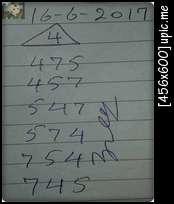 16-6-2017
4
475
457
547
574
754
745
[456x600] upic.me